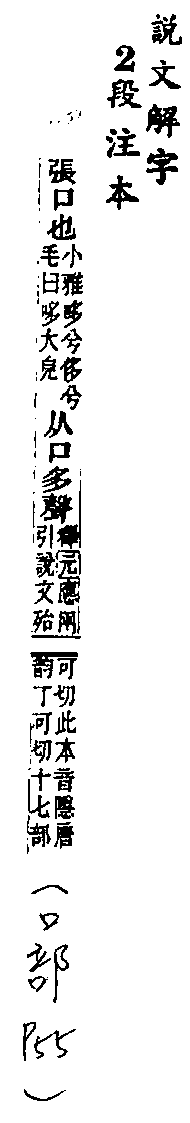 說文解字
2段注本
張口也
小雅哆兮侈兮
毛曰哆大皃
从口多聲
釋元應兩
引說文殆
可切此本音隱唐
韵丁可切十七部
(口部 P55)